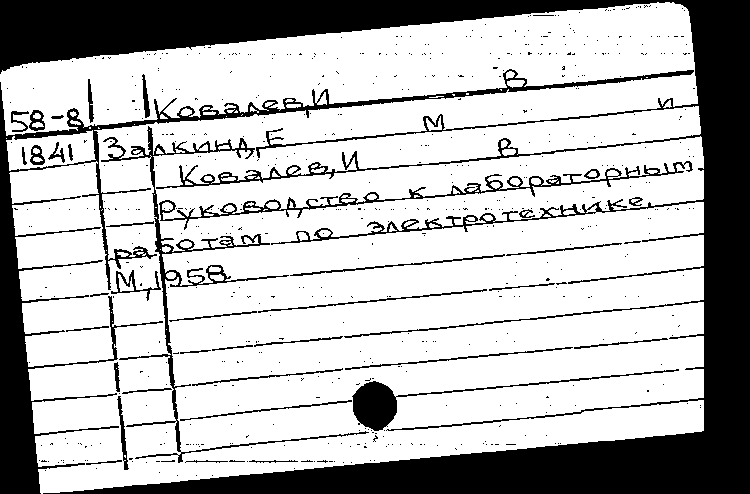 58-8 Ковалев,И В
1841 Залкинд,Е М и
Ковалев,И В
Руководство к лабораторным.
работам по электротехнике.
М.,1958